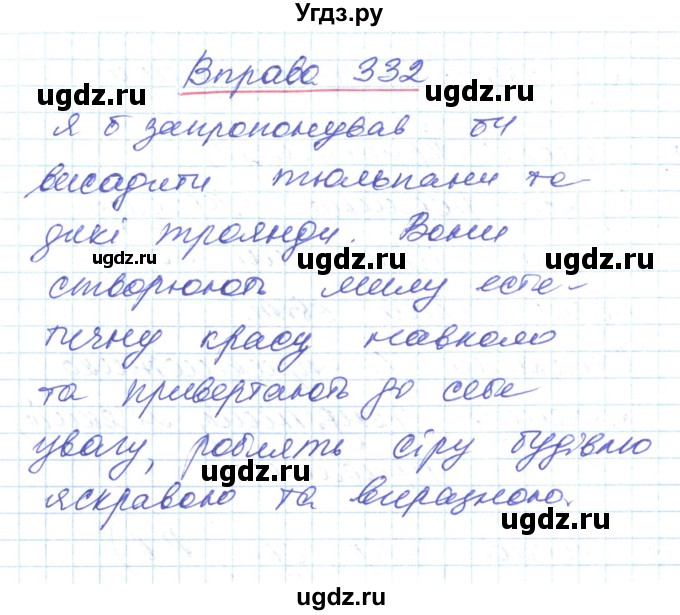 Угдз.ру
Вправа 332
ugdz.ru ugdz.ru
Я б запропонував би
висадити тюльпани та
дикі троянди. Вони
ugdz.ru ugdz.ru
створюють милу есте-
тичну красу навколо
ugdz.ru ugdz.ru
та привертають до себе
увагу, роблять сіру будівлю
ugdz.ru ugdz.ru
яскравою та виразною.
ugdz.ru
ugdz.ru ugdz.ru